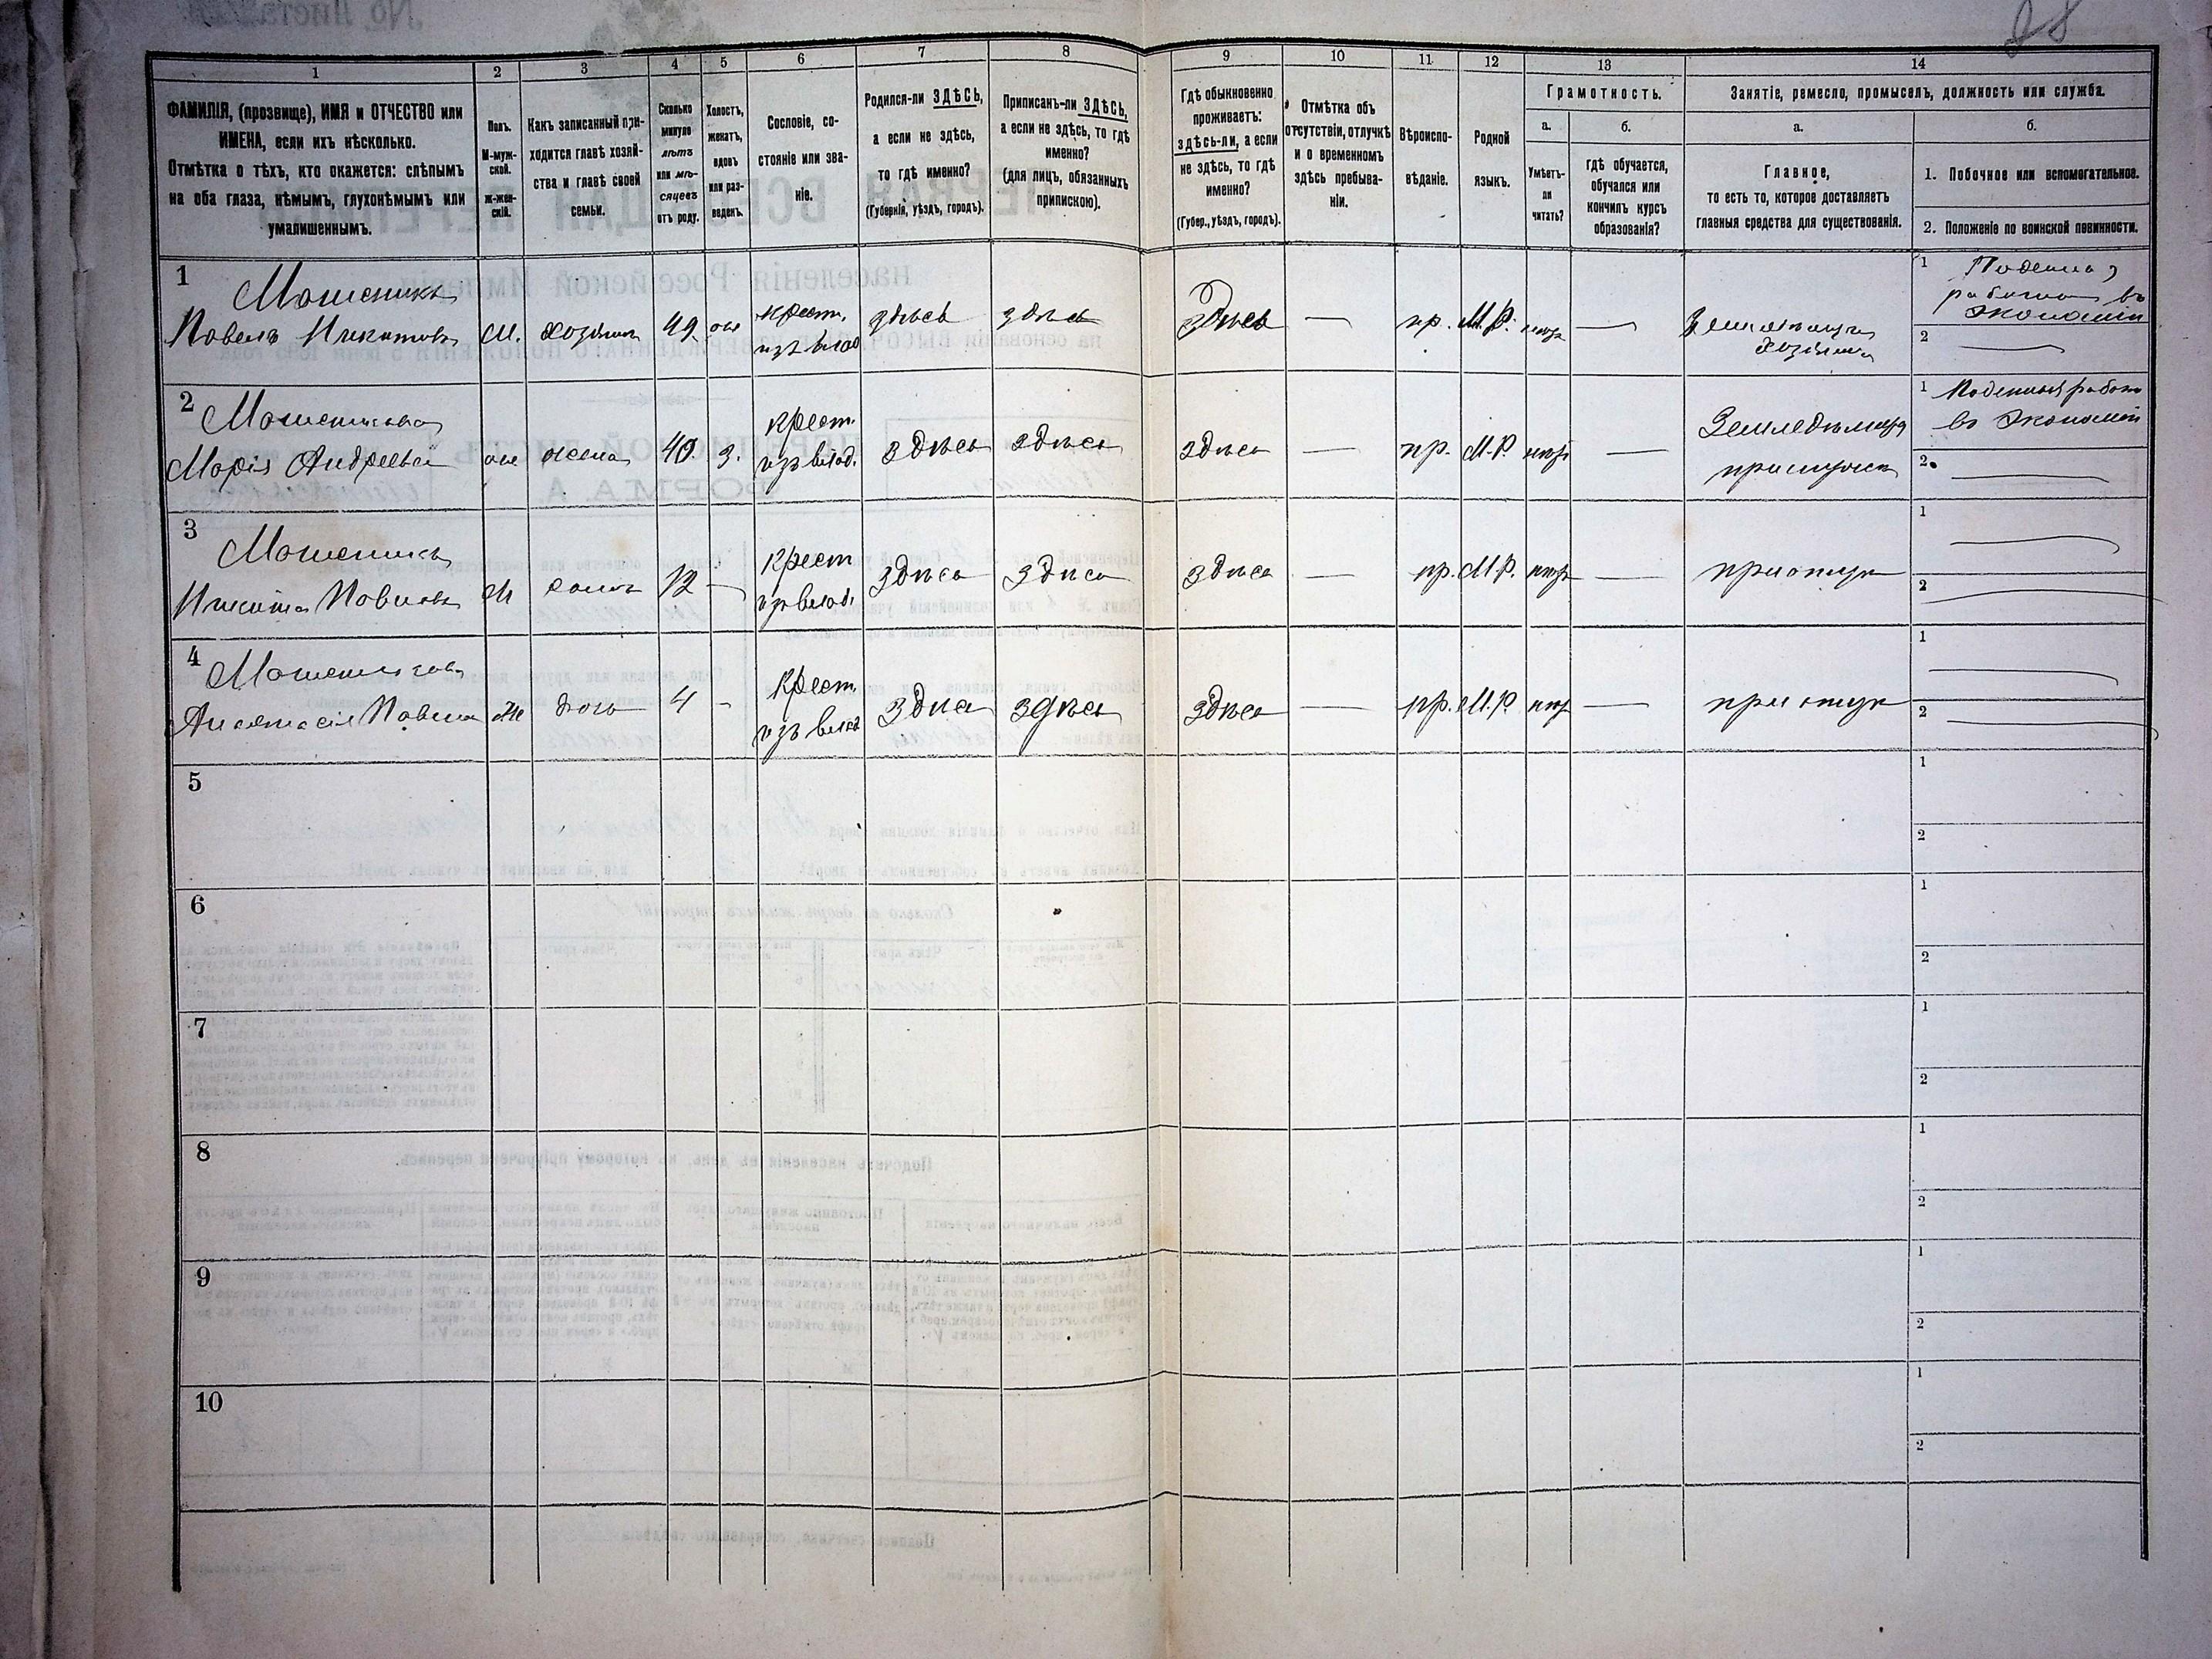 28
1
2
3
4
5
6
7
8
9
10
11
12
13
14
ФАМИЛІЯ, (прозвище), ИМЯ и ОТЧЕСТВО или
ИМЕНА, если ихъ нѣсколько.
Отмѣтка о тѣхъ, кто окажется: слѣпымъ
на оба глаза, нѣмымъ, глухонѣмымъ или
умалишеннымъ.
Полъ.
М-муж-
ской.
Ж-жен-
скій.
Какъ записанный при-
ходится главѣ хозяй-
ства и главѣ своей
семьи.
Сколько
минуло
лѣтъ
или мѣ-
сяцевъ
отъ роду.
Холостъ,
женатъ,
вдовъ
или раз-
веденъ.
Сословіе, со-
стояніе или зва-
ніе.
Родился-ли ЗДѢСЬ,
а если не здѣсь,
то гдѣ именно?
(Губернія, уѣздъ, городъ).
Приписанъ-ли ЗДѢСЬ,
а если не здѣсь, то гдѣ
именно?
(для лицъ, обязанныхъ
припискою).
Гдѣ обыкновенно
проживаетъ:
здѣсь-ли, а если
не здѣсь, то гдѣ
именно?
(Губер., уѣздъ, городъ).
Отмѣтка объ
отсутствіи, отлучкѣ
и о временномъ
здѣсь пребыва-
ніи.
Вѣроиспо-
вѣданіе.
Родной
языкъ.
Грамотность.
а.
б.
Умѣетъ-
ли
читать?
гдѣ обучается,
обучался или
кончилъ курсъ
образованія?
Занятіе, ремесло, промыселъ, должность или служба.
а.
б.
Главное,
то есть то, которое доставляетъ
главныя средства для существованія.
1. Побочное или вспомогательное.
2. Положеніе по воинской повинности.
1
Мошеникъ
Павелъ Никитовъ
М. хозяинъ 49
крест.
изъ влад
здѣсь здѣсь Здѣсь — пр. М.Р. —
хозяинъ
1
работа въ
экономіи
2
2
Мошеникова
Марія Андреева
жена 40. З.
крест.
изъ влад.
Здѣсь Здѣсь Здѣсь — пр. М.Р. —
1 Поденная работа
въ Экономіи
2.
3
Мошеникъ
Никита Павловъ
М сынъ 12 —
Крест
изъ влад.
Здѣсь Здѣсь Здѣсь — пр. М.Р. —
1
2
4
Мошеникова
Анастасія Павлова
Ж дочь 4 -
Крест
изъ влад
Здѣсь Здѣсь Здѣсь — пр. М.Р. —
1
2
5
1
2
6
1
2
7
1
2
8
1
2
9
1
2
10
1
2